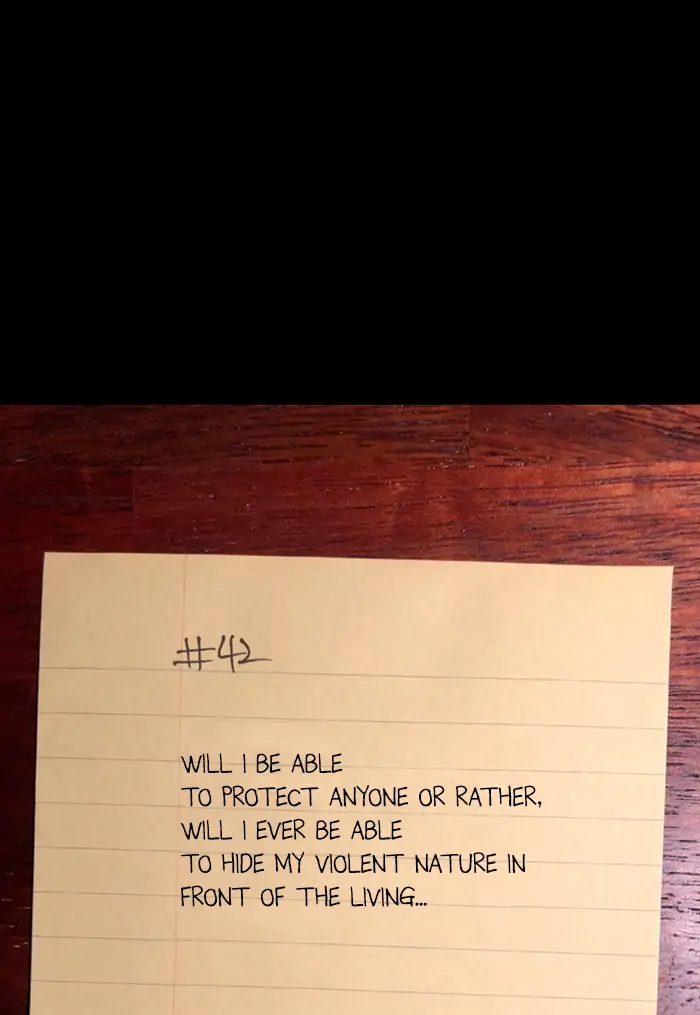 #42
WILL I BE ABLE
TO PROTECT ANYONE OR RATHER,
WILL I EVER BE ABLE
TO HIDE MY VIOLENT NATURE IN
FRONT OF THE LIVING...